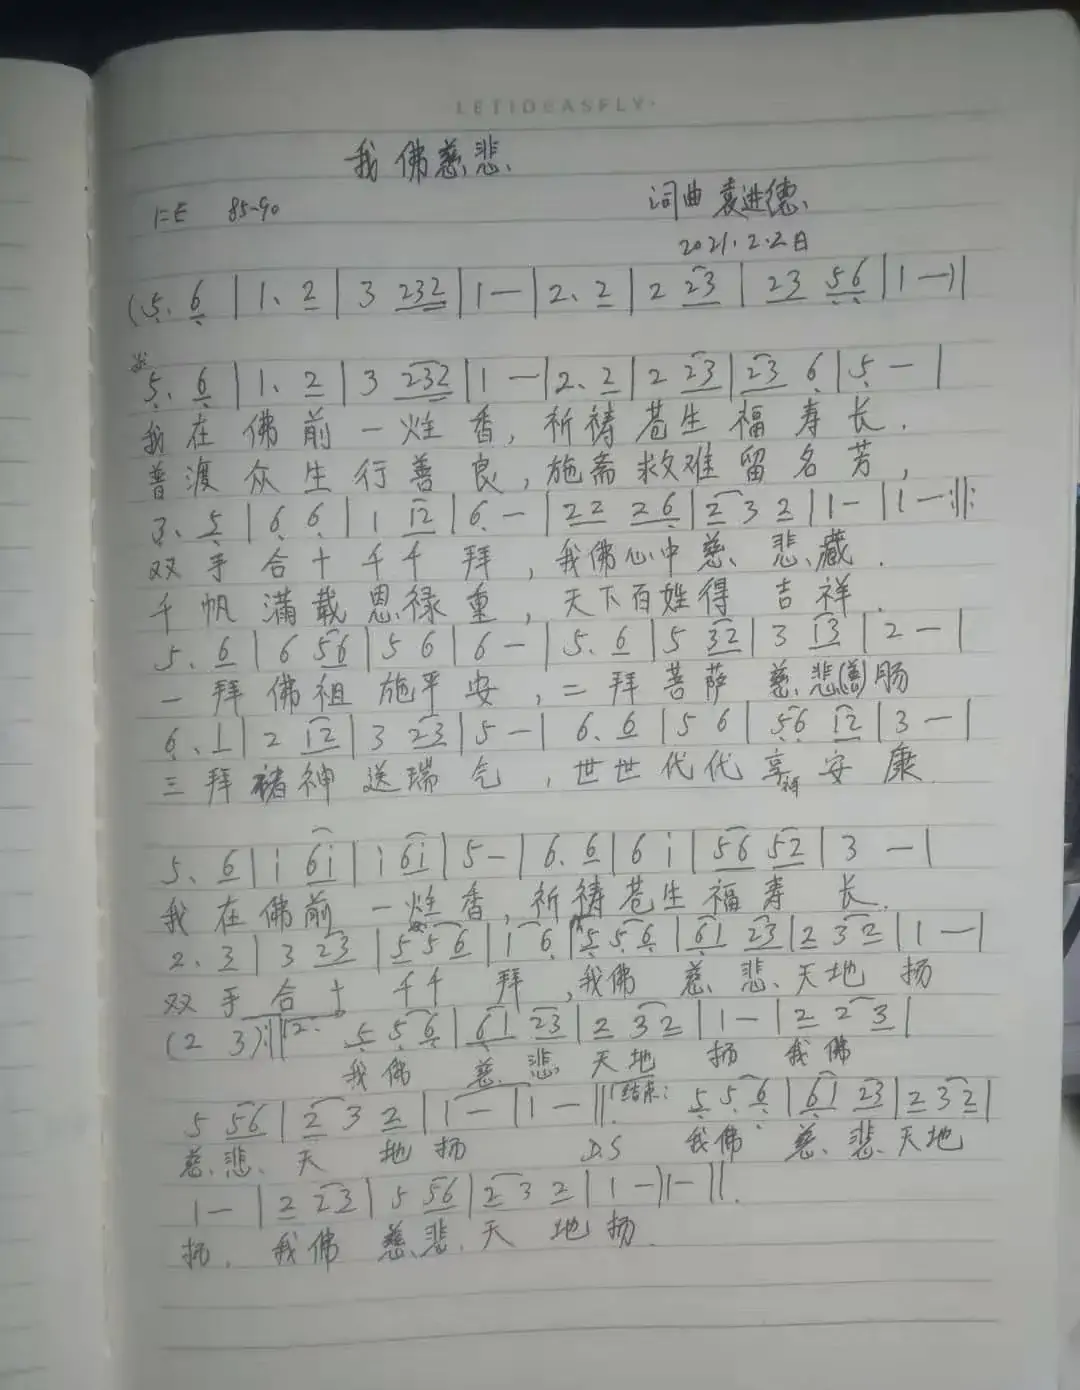 ·LETIDEASFLY·
我佛慈悲、
1=E 85-90 词曲 袁进德、
2021.2.2日
(5. 6 | 1. 2 | 3 232 | 1 — | 2. 2 | 2 23 | 23 56 | 1 —) |
5. 6 | 1. 2 | 3 232 | 1 — | 2. 2 | 2 23 | 23 6 | 5 — |
我在佛前一炷香,祈祷苍生福寿长.
普渡众生行善良,施斋救难留名芳,
3. 5 | 6 6 | 1 12 | 6. — | 22 26 | 2 3 2 | 1 — | 1 — :||:
双手合十千千拜,我佛心中慈、悲、藏.
千帆满载恩禄重,天下百姓得吉祥.
5. 6 | 6 56 | 5 6 | 6 — | 5. 6 | 5 32 | 3 13 | 2 — |
一拜佛祖施平安,二拜菩萨慈、悲(善)肠
6. 1 | 2 12 | 3 23 | 5 — | 6. 6 | 5 6 | 56 12 | 3 — |
三拜诸神送瑞气,世世代代享安康.
5. 6 | i 6i | i 6i | 5 — | 6. 6 | 6 i | 56 52 | 3 — |
我在佛前一炷香,祈祷苍生福寿长.
2. 3 | 3 23 | 5 5 6 | 1 6 | 5 5 6 | 61 23 | 2 3 2 | 1 — |
双手合十千千拜,我佛慈、悲、天地扬
(2 3) :|| 2. 5 5 6 | 61 23 | 2 3 2 | 1 — | 2 2 3 |
我佛慈、悲、天地扬 我佛
5 56 | 2 3 2 | 1 — | 1 — || 结束: 5 5 6 | 61 23 | 2 3 2 |
慈、悲、天地扬 D.S 我佛慈、悲、天地
1 — | 2 23 | 5 56 | 2 3 2 | 1 — | 1 — ||.
扬. 我佛慈、悲、天地扬.